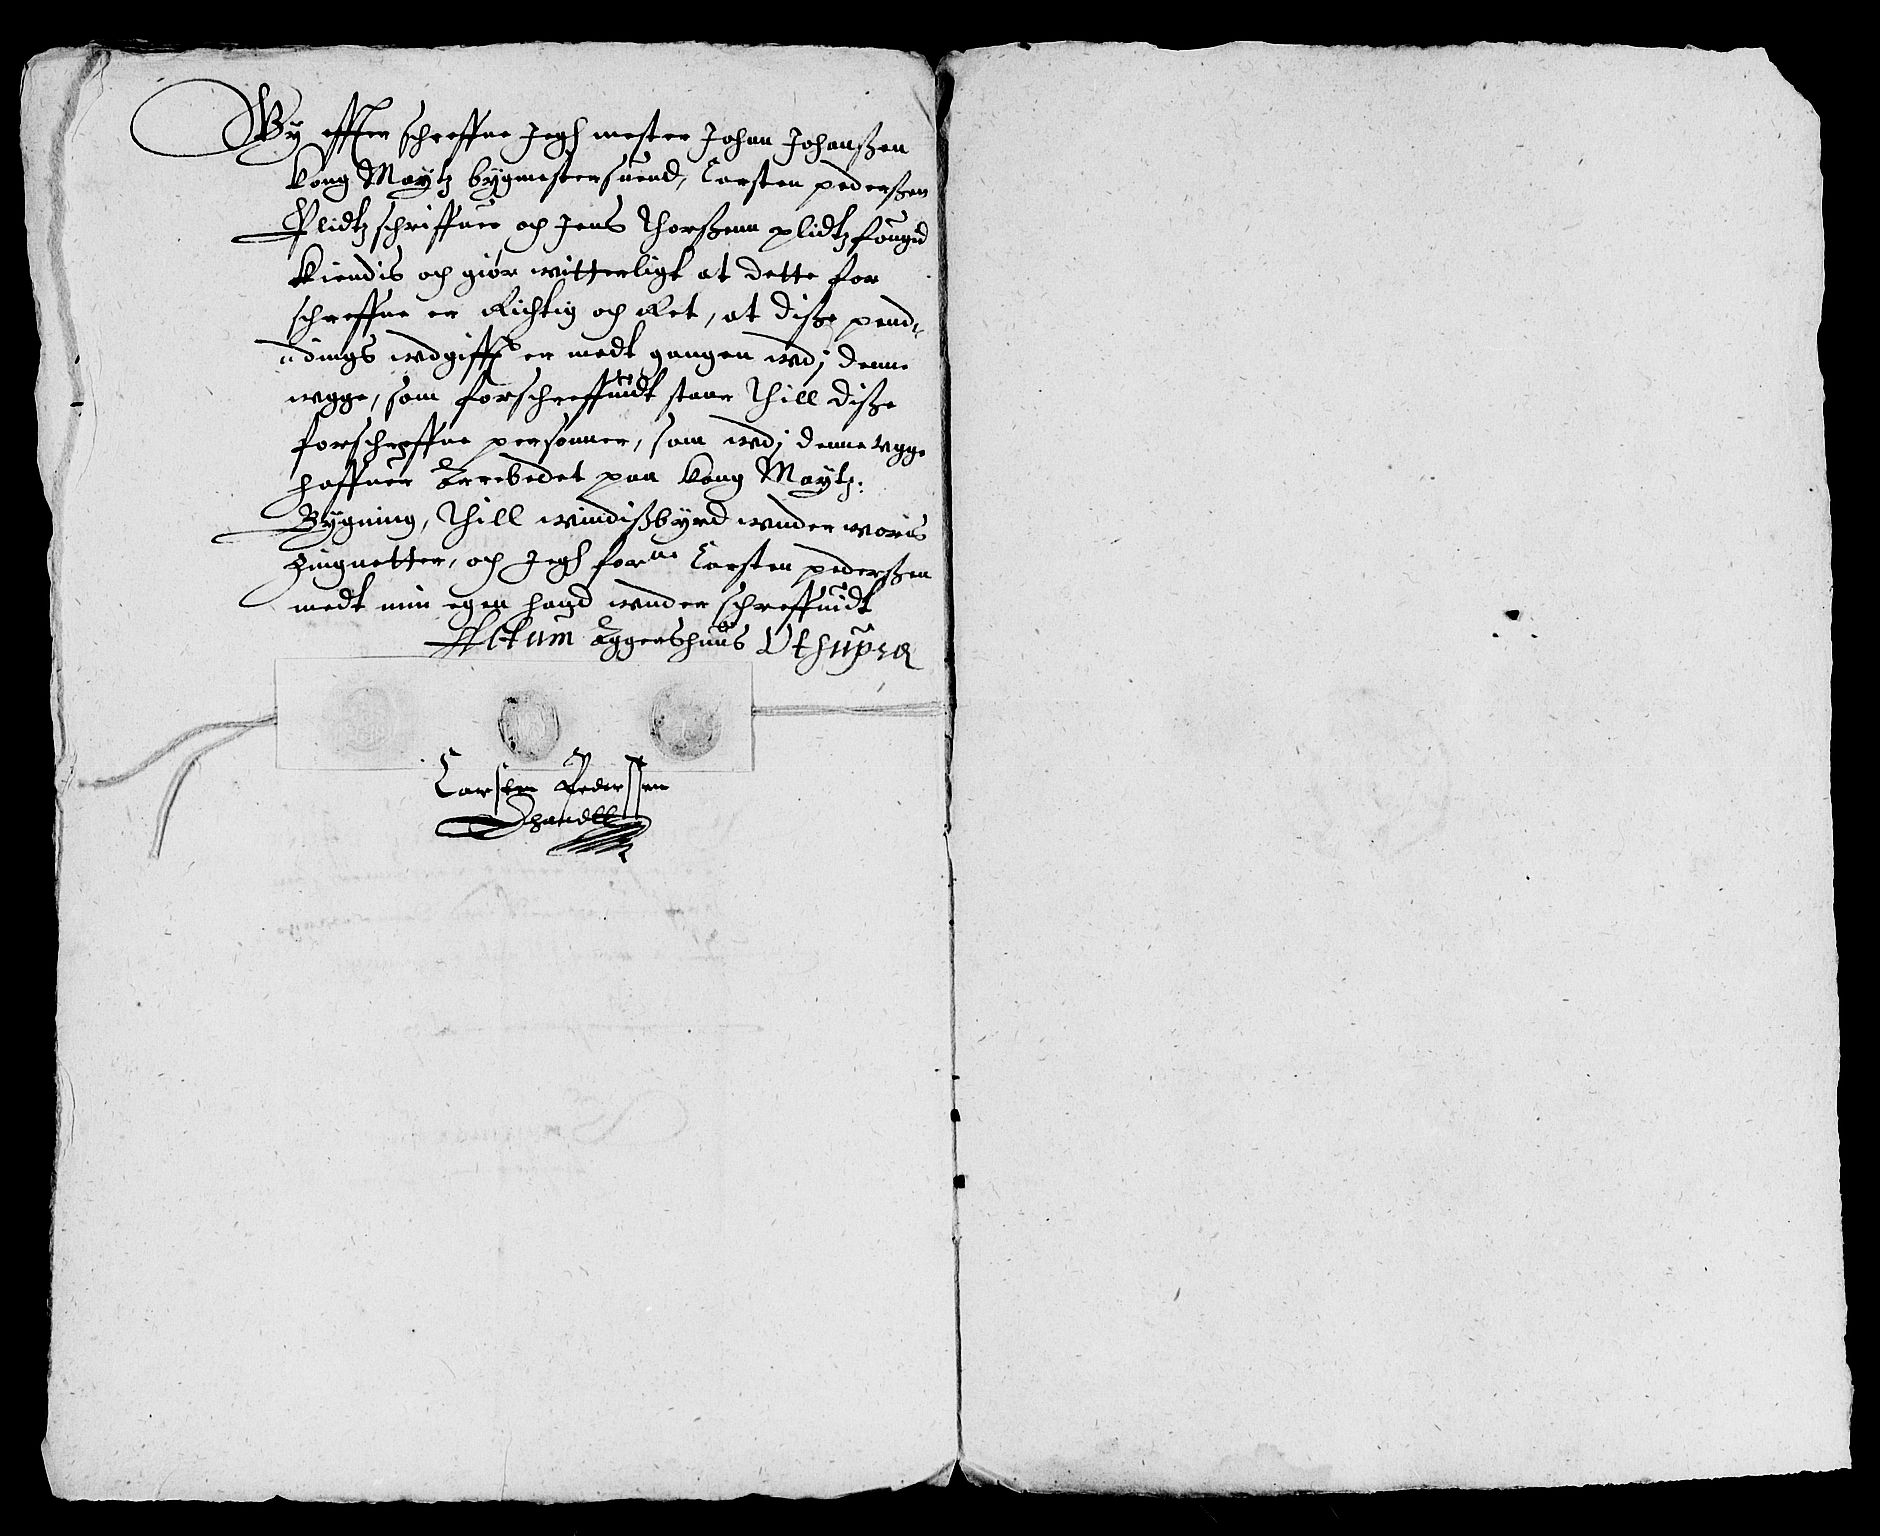 Wy effterschreffne Jegh mester Johan Johanßen
kong Maytz bygmestersuend, Carsten pederßen
Plidtzschriffuer och Jens Thorßenn plidtzfougid
kiendis och giør witterligt at dette for
schreffne er Richtig och Ret, at diße pend¬
dings wdgifft er medt gangen wdj denne
wgge, som forschreffuidt staar Thill diße
forschreffne personner, som wdj denne vgge
haffuer Arrebedet paa kong Maytz:
Bÿgning, Thill windißbyrd wnder woris
Zingnetter, och Jegh forne Carsten pederßen
medt min egen hand wnder schreffuidt
Actum Aggershuus Vt supra
Carsten Pederssen
Ehandtt